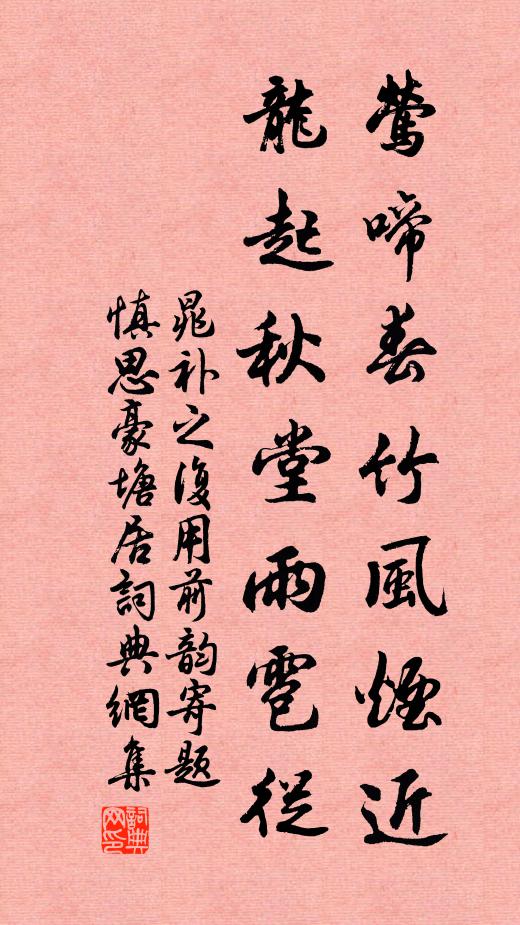 鶯啼春竹風煙近
龍起秋堂雨雹從
晁補之復用前韵寄題
慎思豪塘居詞典網集
詞典网印